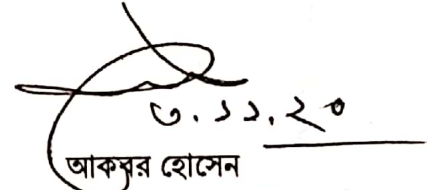 ৩.১১.২০
আকবর হোসেন